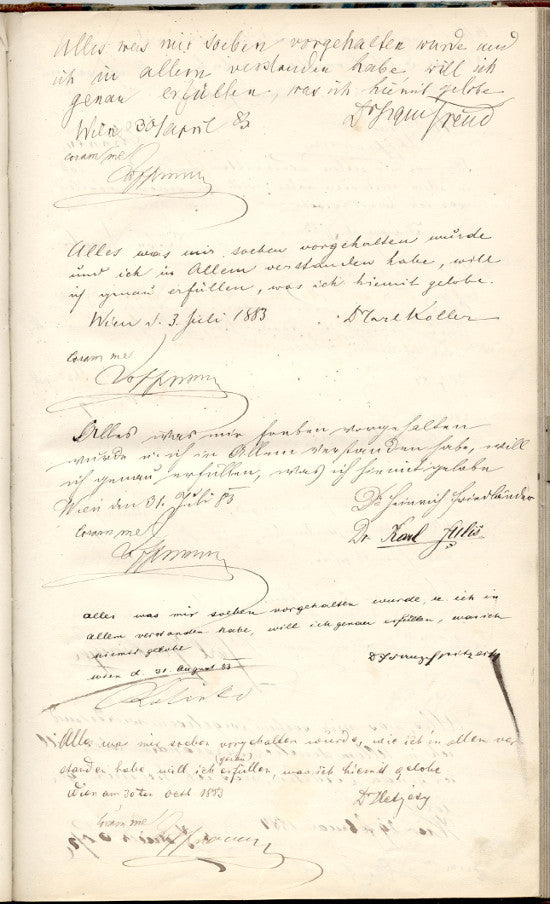 Alles was mir soeben vorgehalten wurde und
ich in allem verstanden habe will ich
genau erfüllen, was ich hiemit gelobe
Wien 30 April 83
Dr Sigm Freud
coram me
Hoffmann
Alles was mir soeben vorgehalten wurde
und ich in Allem verstanden habe, will
ich genau erfüllen, was ich hiemit gelobe.
Wien d. 3. Juli 1883
Dr Carl Koller
Coram me
Hoffmann
Alles was mir soeben vorgehalten
wurde u. ich in Allem verstanden habe, will
ich genau erfüllen, was ich hiemit gelobe
Wien den 31. Juli 83
Dr Heinrich Friedländer
Dr. Karl
Coram me
Hoffmann
Alles was mir soeben vorgehalten wurde, u. ich in
allem verstanden habe, will ich genau erfüllen, was ich
hiemit gelobe
Wien d. 31. August 83
Dr Franz
Alles was mir soeben vorgehalten wurde, wie ich in allem ver
standen habe will ich genau erfüllen, was ich hiemit gelobe
Wien am 30ten Oct 1883
Coram me
Hoffmann